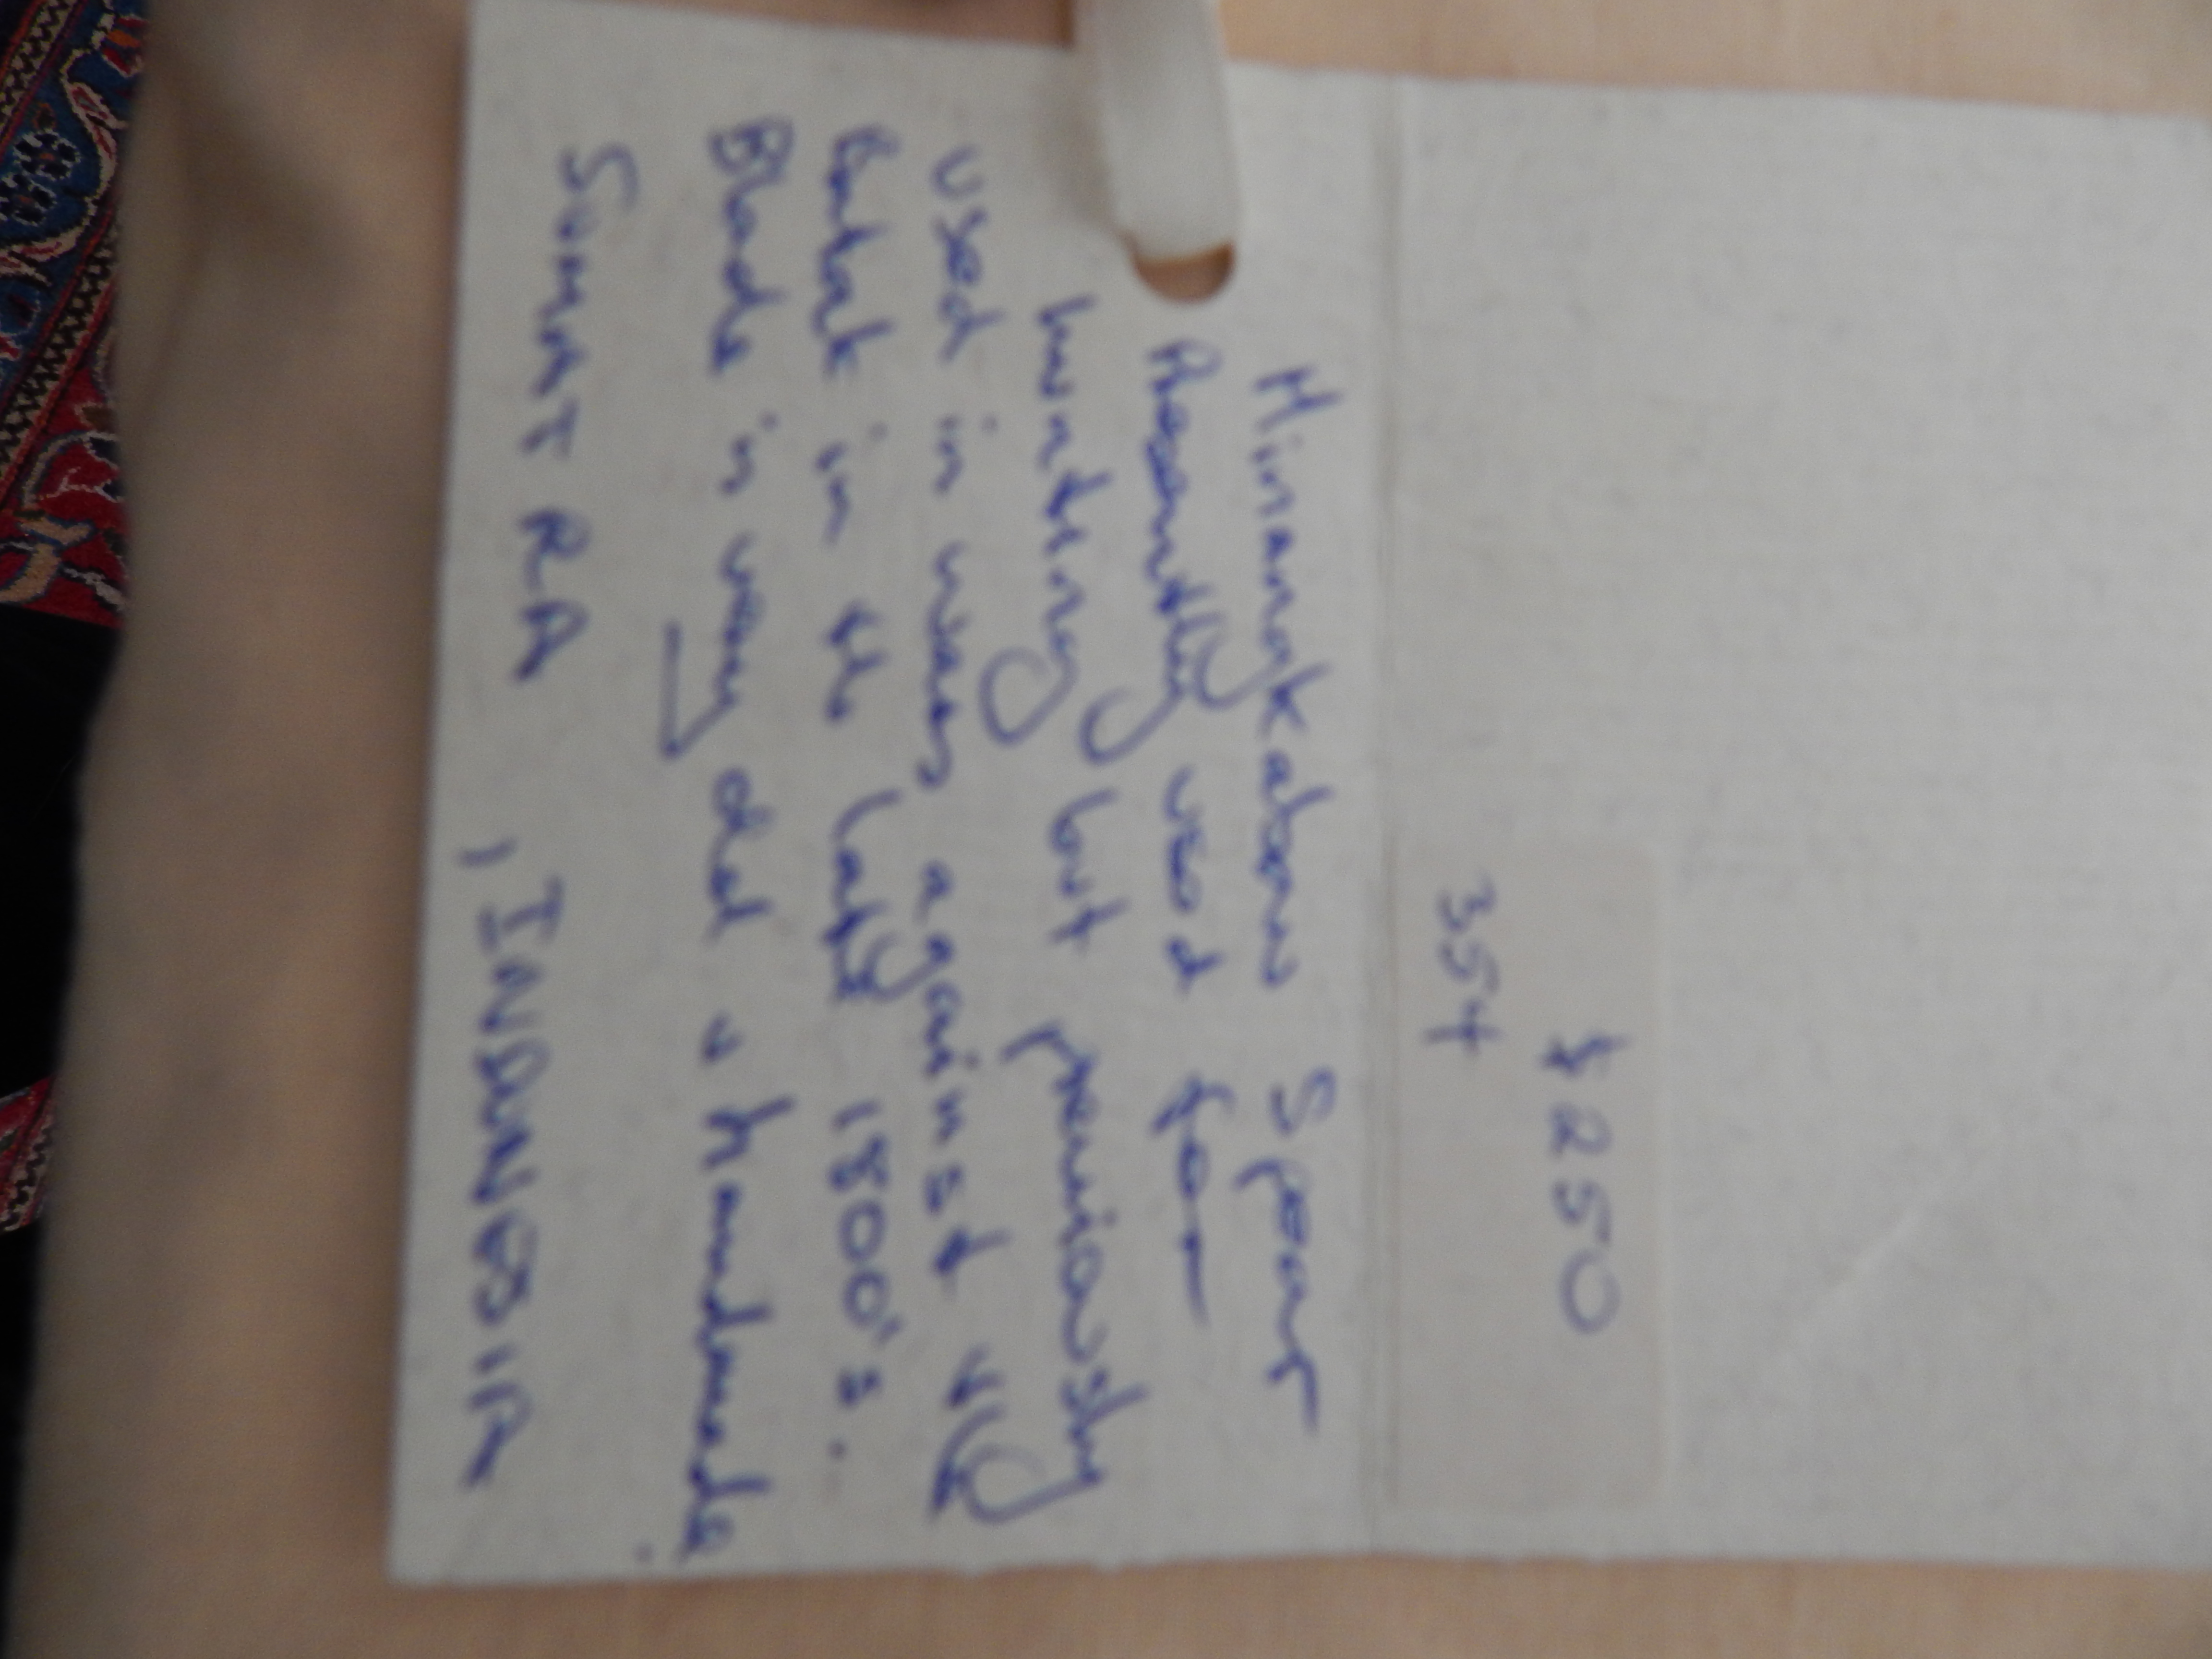 $250
354
Minangkabau Spear
Presently used for
hunting but previously
used in wars against the
Batak in the late 1800's.
Blade is very old & handmade.
SUMATRA, INDONESIA